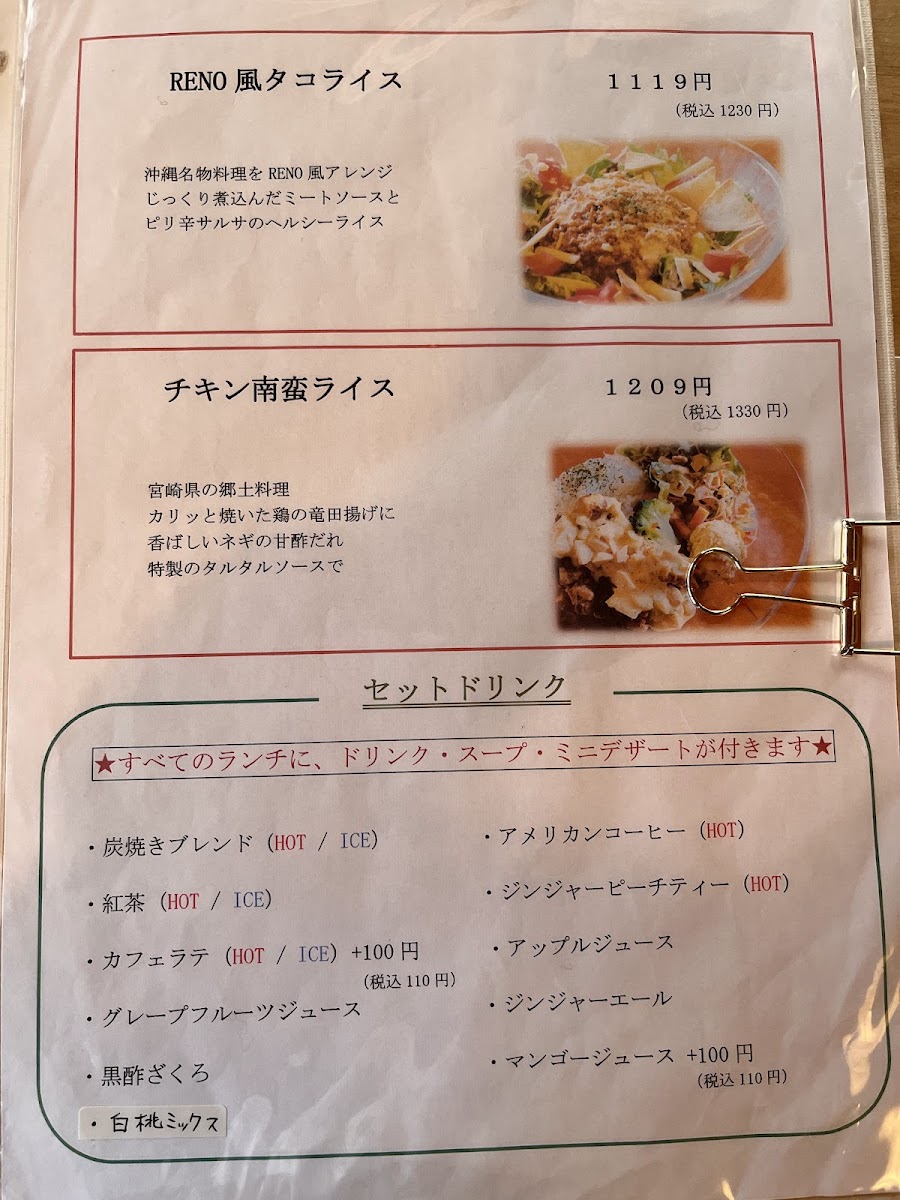 RENO 風タコライス
1119円
(税込 1230 円)
沖縄名物料理を RENO 風アレンジ
じっくり煮込んだミートソースと
ピリ辛サルサのヘルシーライス
チキン南蛮ライス
1209円
(税込 1330 円)
宮崎県の郷土料理
カリッと焼いた鶏の竜田揚げに
香ばしいネギの甘酢だれ
特製のタルタルソースで
セットドリンク
★すべてのランチに、ドリンク・スープ・ミニデザートが付きます★
・炭焼きブレンド (HOT / ICE)
・紅茶 (HOT / ICE)
・カフェラテ (HOT / ICE) +100 円
(税込 110 円)
・グレープフルーツジュース
・黒酢ざくろ
・白桃ミックス
・アメリカンコーヒー (HOT)
・ジンジャーピーチティー (HOT)
・アップルジュース
・ジンジャーエール
・マンゴージュース +100 円
(税込 110 円)